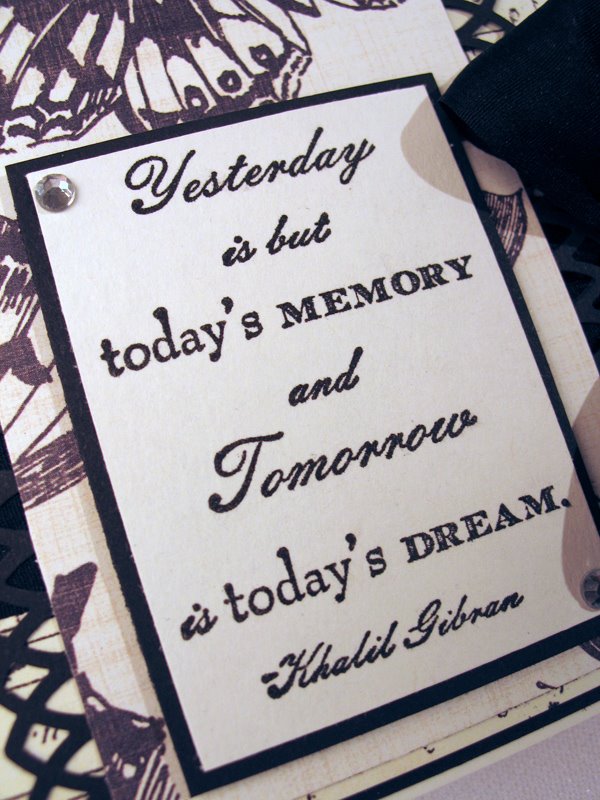 Yesterday
is but
today's MEMORY
and
Tomorrow
is today's DREAM.
-Khalil Gibran